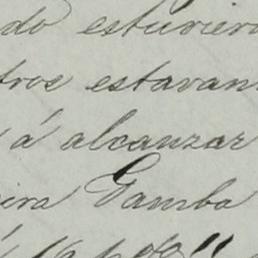 do estuviero
tros estavan
á alcanzar
ira Gamba